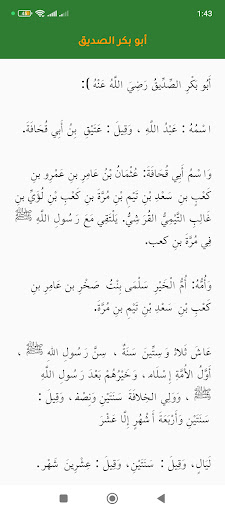 1:43
أبو بكر الصديق
أَبُو بَكْرٍ الصِّدِّيقُ رَضِيَ اللَّهُ عَنْهُ ):
اسْمُهُ : عَبْدُ اللَّهِ ، وَقِيلَ : عَتِيْقُ بْنُ أَبِي قُحَافَةَ.
وَاسْمُ أَبِي قُحَافَةَ: عُثْمَانُ بْنُ عَامِرِ بنِ عَمْرِو بنِ
كَعْبِ بنِ سَعْدِ بْنِ تَيْمِ بْنِ مُرَّةَ بنِ كَعْبِ بْنِ لُؤَيِّ بنِ
غَالِبٍ التَّيْمِيُّ القُرَشِيُّ. يَلْتَقِي مَعَ رَسُولِ اللَّهِ ﷺ
فِي مُرَّةَ بْنِ كعب.
وَأُمُّهُ: أُمُّ الْخَيْرِ سَلْمَى بِنْتُ صَخْرِ بنِ عامِرِ بنِ
كَعْبِ بْنِ سَعْدِ بْنِ تَيْمِ بنِ مُرَّةَ.
عَاشَ ثَلاثَ وَسِتِّينَ سَنَةً ، سِنَّ رَسُولِ اللهِ ﷺ ،
أَوَّلُ الأُمَّةِ إِسْلَامًا، وَخَيْرُهُمْ بَعْدَ رَسُولِ اللَّهِ
ﷺ ، وَوَلِيَ الخِلافَةَ سَنَتَيْنِ وَنِصْفَ، وَقِيلَ :
سَنَتَيْنِ وَأَرْبَعَةَ أَشْهُرٍ إِلَّا عَشْرَ
لَيَالٍ، وَقِيلَ : سَنَتَيْنِ، وَقِيلَ : عِشْرِينَ شَهْر.